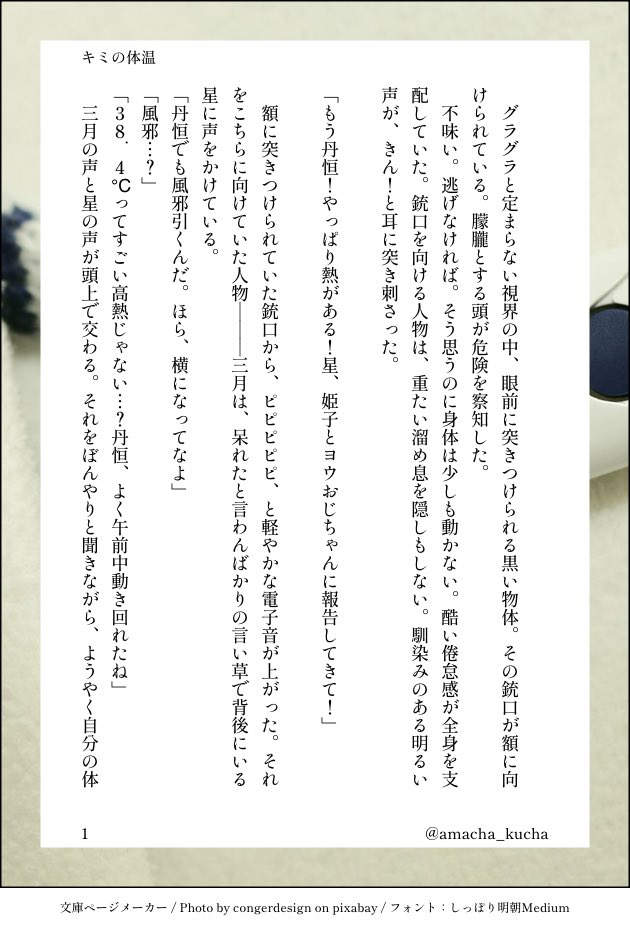 キミの体温
　グラグラと定まらない視界の中、眼前に突きつけられる黒い物体。その銃口が額に向
けられている。朦朧とする頭が危険を察知した。
　不味い。逃げなければ。そう思うのに身体は少しも動かない。酷い倦怠感が全身を支
配していた。銃口を向ける人物は、重たい溜め息を隠しもしない。馴染みのある明るい
声が、きん！と耳に突き刺さった。
「もう丹恒！やっぱり熱がある！星、姫子とヨウおじちゃんに報告してきて！」
　額に突きつけられていた銃口から、ピピピピピ、と軽やかな電子音が上がった。それ
をこちらに向けていた人物――三月は、呆れたと言わんばかりの言い草で背後にいる
星に声をかけている。
「丹恒でも風邪引くんだ。ほら、横になってなよ」
「風邪…？」
「３８．４℃ってすごい高熱じゃない…？丹恒、よく午前中動き回れたね」
　三月の声と星の声が頭上で交わる。それをぼんやりと聞きながら、ようやく自分の体
1
@amacha_kucha
文庫ページメーカー / Photo by congerdesign on pixabay / フォント：しっぽり明朝Medium